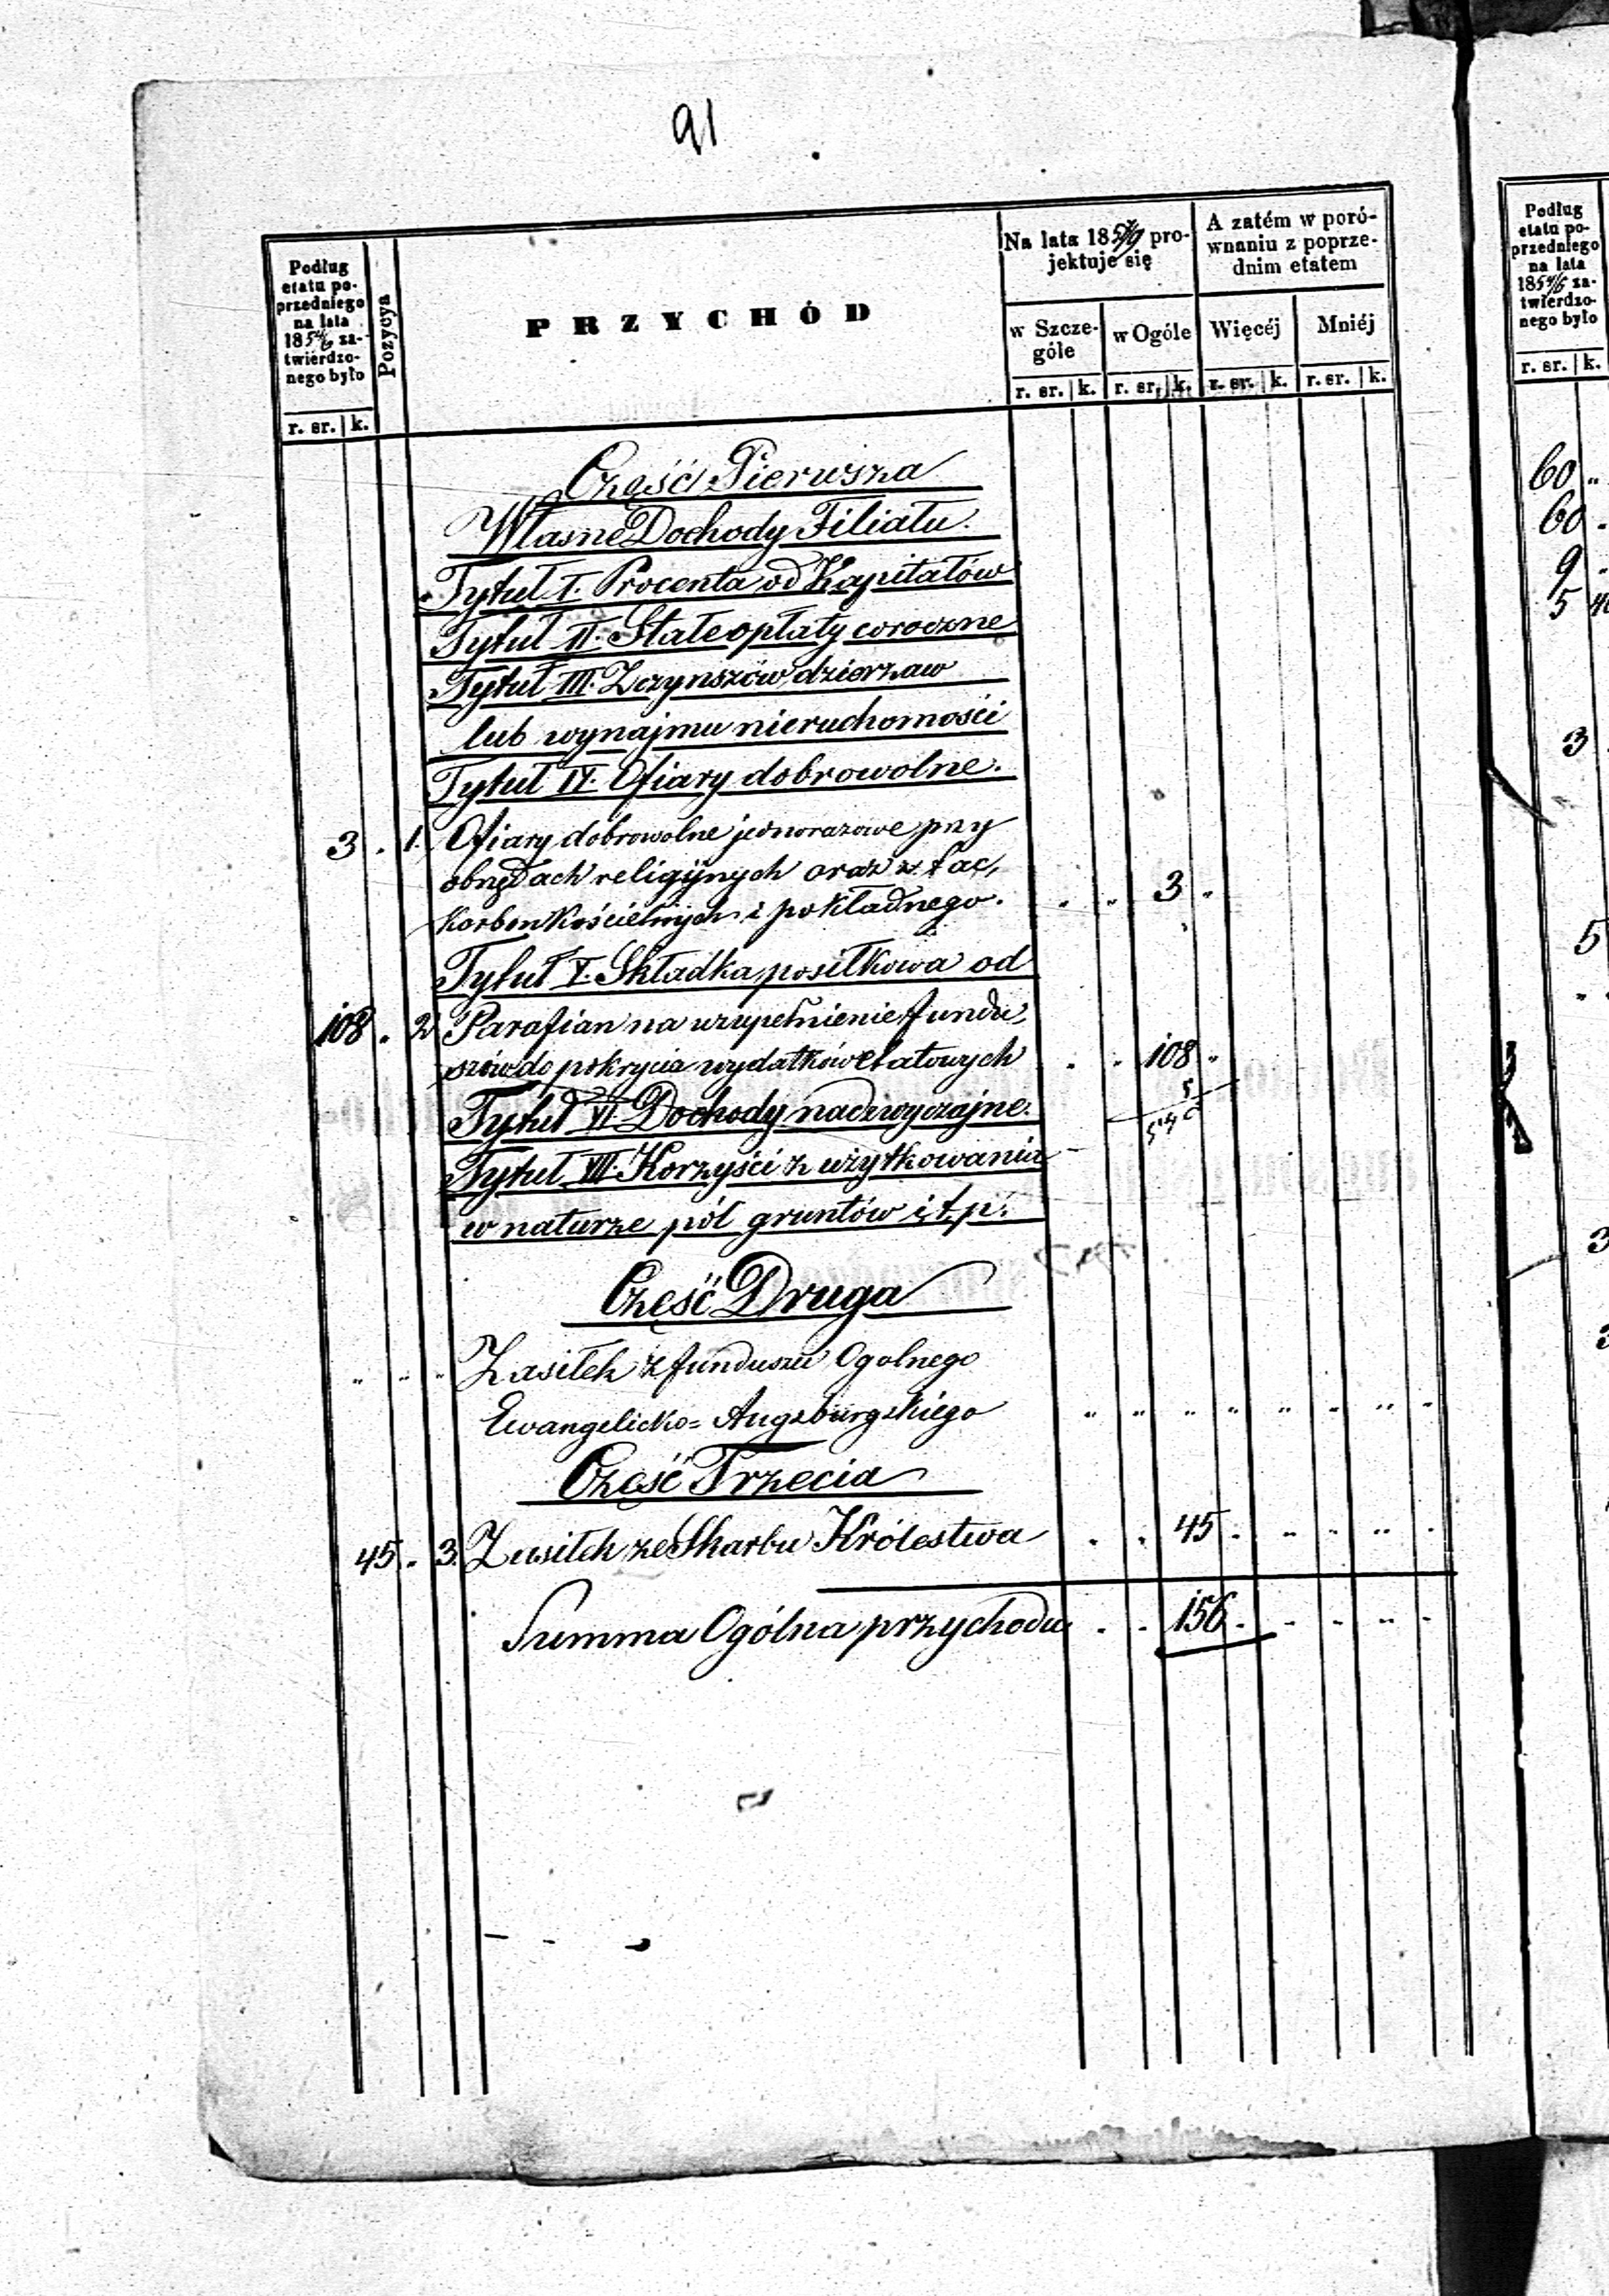 91
Podług
etatu po-
przedniego
na lata
185 4/6 za-
twierdzo-
nego było
r. sr. k.
Pozycya
PRZYCHÓD
Na lata 185 7/9 pro-
jektuje się
w Szcze-
góle
w Ogóle
r. sr. k. r. sr. k.
A zatém w poró-
wnaniu z poprze-
dnim etatem
Więcéj Mniéj
r. sr. k. r. sr. k.
Część Pierwsza
Własne Dochody Filiału.
Tytuł I. Procenta od Kapitałów
Tytuł II. Stałe opłaty coroczne
Tytuł III. Z czynszów, dzierzaw
lub wynajmu nieruchomości
Tytuł IV. Ofiary dobrowolne.
3 . 1. Ofiary dobrowolne jednorazowe przy
obrzędach religijnych oraz z tac,
Karbon Kościelnych i pokładnego. . „ 3 „
Tytuł V. Składka posiłkowa od
108 . 2 Parafian na uzupełnienie fundu,
szów do pokrycia wydatków etatowych . „ 108 „
Tytuł VI Dochody nadzwyczajne.
Tytuł VII. Korzyści z użytkowania
w naturze pól gruntów i t.p.
Część Druga
„ „ „ Zasiłek z funduszu Ogolnego
Ewangelicko= Augsburgskiego „ „ „ „ „ „ „ „
Część Trzecia
45 . 3. Zasiłek ze Skarbu Królestwa . . 45 . „ „ „ „
Summa Ogólna przychodu . . 156 . „ „ „ „
Podług
etatu po-
przedniego
na lata
185 4/6 za-
twierdzo-
nego było
r. sr. k.
60 „
60 .
9 .
5
3
5
„ „
3